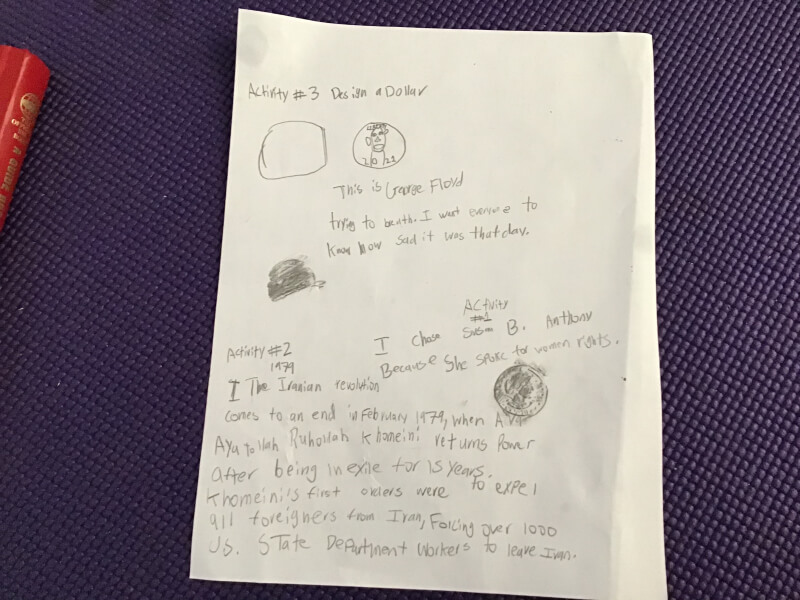 Activity #3 Design a Dollar
2021
This is George Floyd
trying to breath. I want everyone to
know how sad it was that day.
Activity
#1
I chose Susan B. Anthony
Because she spoke for women rights.
Activity #2
1979
I The Iranian revolution
comes to an end in February 1979, when A
Ayatollah Ruhollah Khomeini returns Power
after being in exile for 15 years.
Khomeini's first orders were to expel
all foreigners from Iran, Forcing over 1000
US. State Department workers to leave Iran.